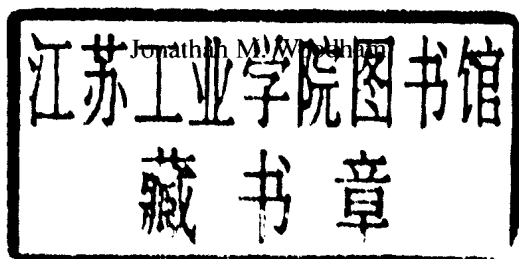 Jonathan M. Woodham
江苏工业学院图书馆
藏书章